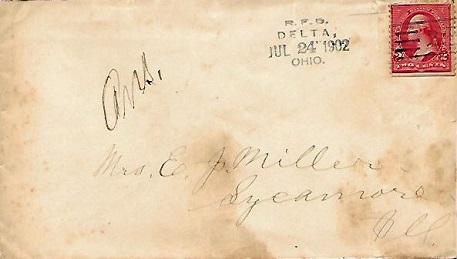 R.F.D.
DELTA,
JUL 24 1902
OHIO.
Ans.
Mrs. E. J. Miller
Sycamore
Ill
TWO CENTS